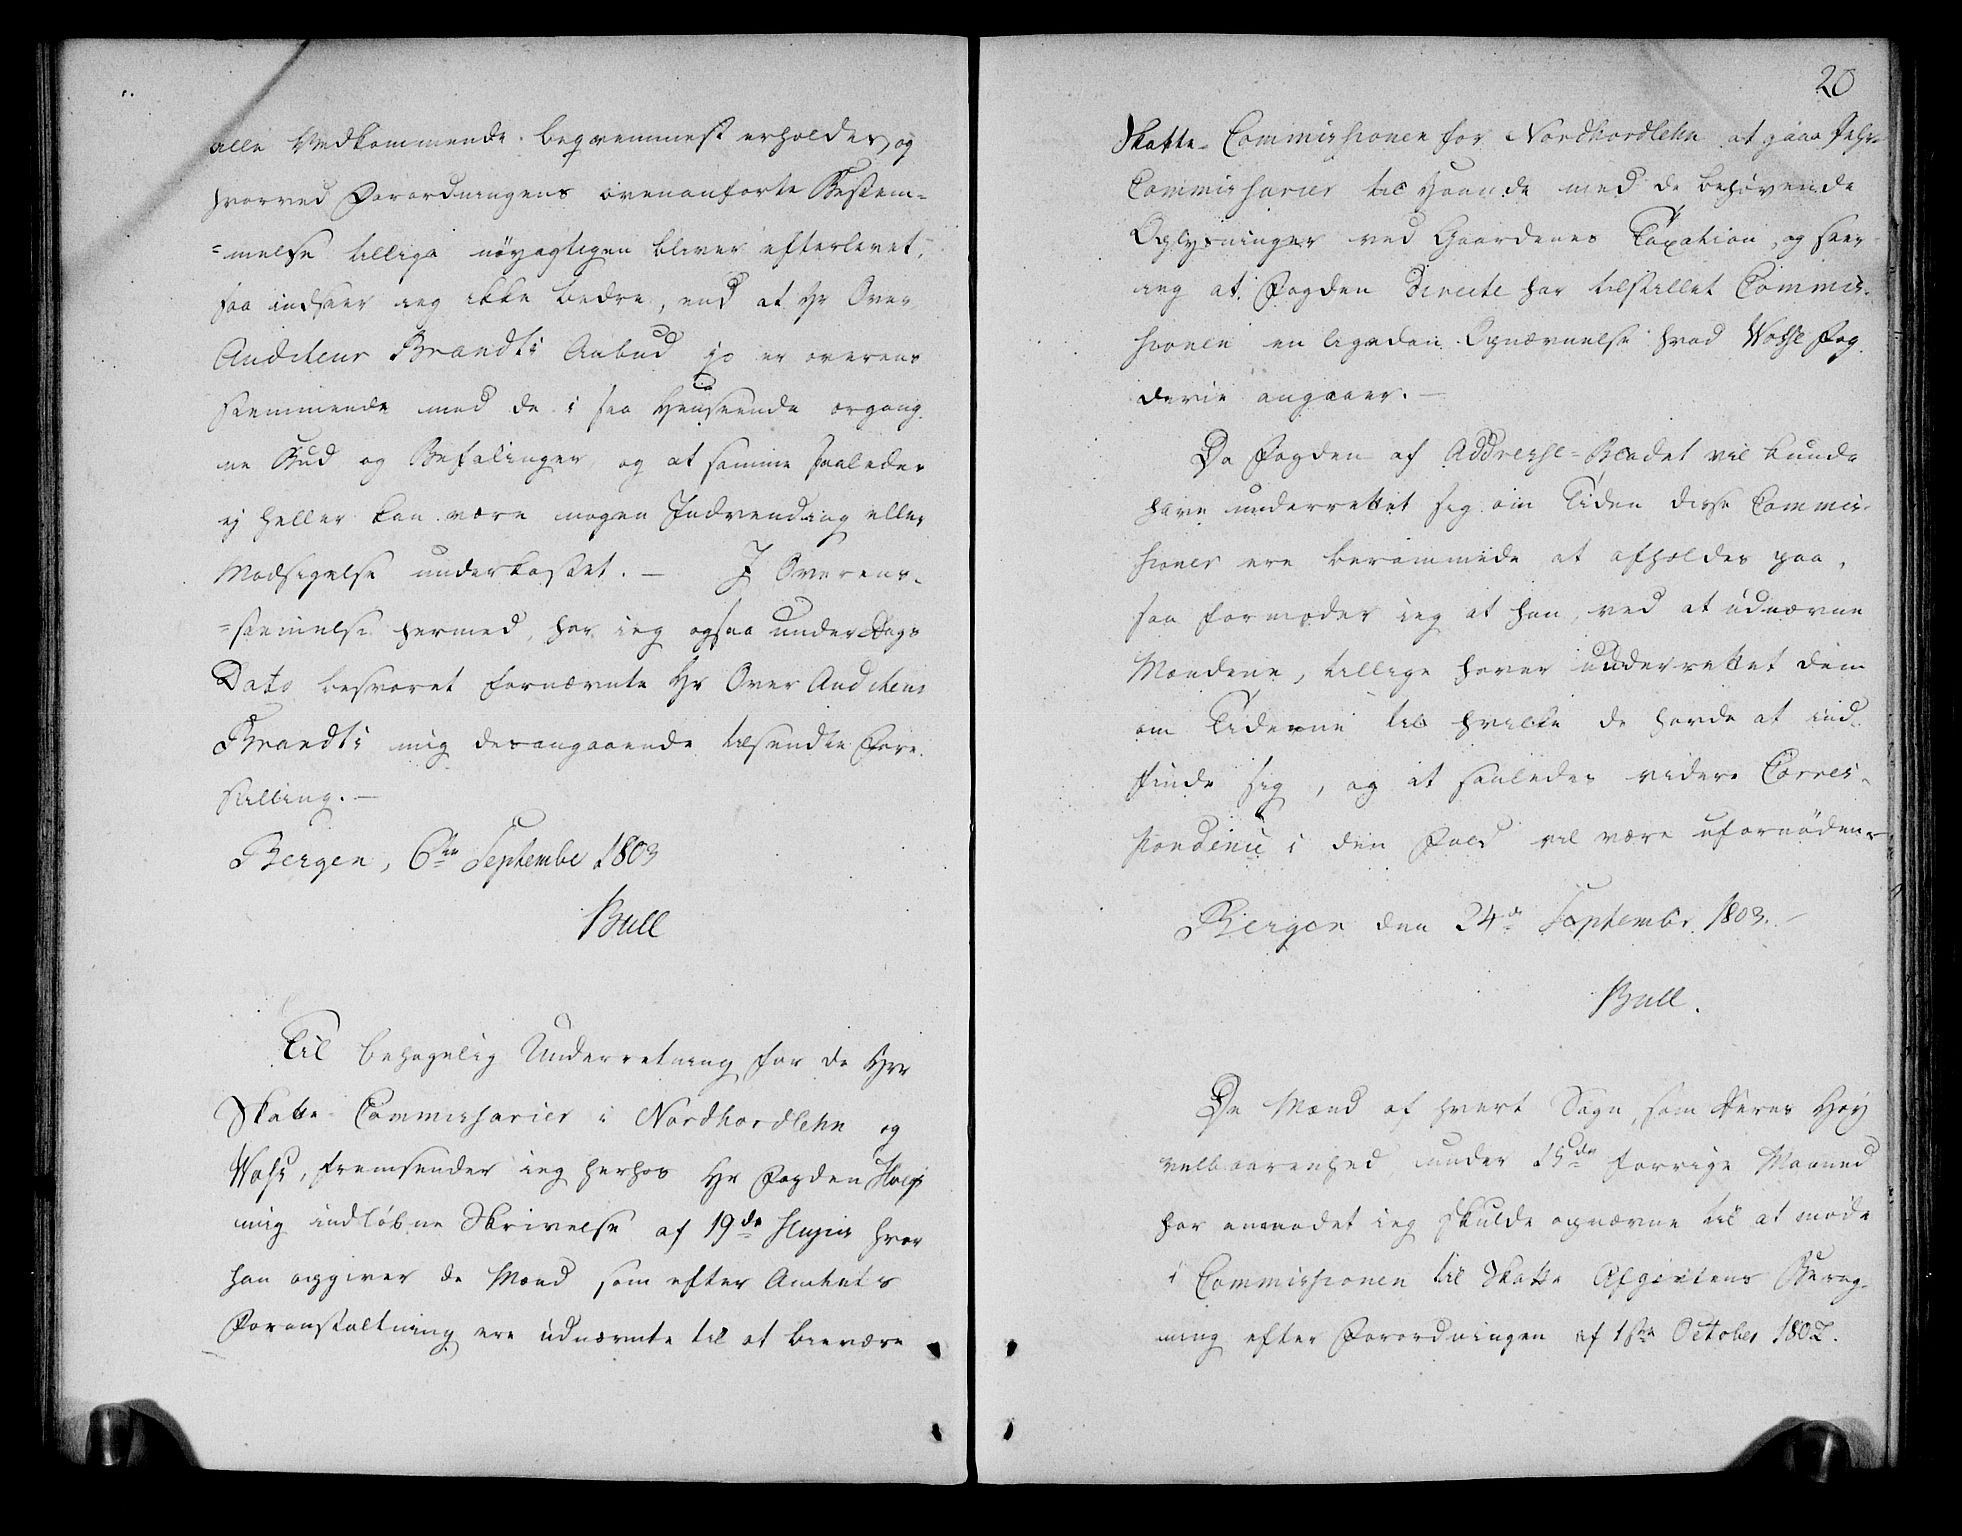 alle Vedkommende beqvemmest erholdes, og
hvorved Forordningens ovenanførte Bestem-
=melse tillige nöyagtigen bliver efterlevet,
saa indseer ieg ikke bedre, end at Hr Over
Auditeur Brandts Anbud jo er overens
stemmende med de i saa Henseende ergang
ne Bud og Befalinger, og at samme saaledes
ej heller kan være nogen Indvending eller
Modsigelse underkastet. — I Overens-
=stemmelse hermed, har ieg ogsaa under Dags
Dato besvaret fornævnte Hr Over Auditeur
Brandts mig desangaaende tilsendte Fore
stilling. —
Bergen, 6te September 1803
Bull
Til behagelig Underretning for de Hrr
Skatte Commissarier i Nordhordlehn og
Voss, fremsender ieg herhos Hr Fogden
mig indløbne Skrivelse af 19de hujus hvor
han opgiver de Mænd som efter Amtets
Foranstaltning ere udnævnte til at bievære
20
Skatte- Commissionen for Nordhordlehn at gaae
Commissarier til Haande med de behøvende
Oplysninger ved Gaardenes Taxation, og seer
ieg at Fogden directe har tilstillet Commis-
sionen en ligedan Opnævnelse hvad Vosse Fog
derie angaaer. —
Da Fogden af Addresse-Bladet vil kunde
have underrettet sig om Tiden disse Commis-
sioner ere berammede at afholdes paa,
saa formoder ieg at han, ved at udnævne
Mændene, tillige haver underrettet dem
om Tiderne til hvilke de havde at ind
finde sig, og at saaledes videre Corres-
pondence i den Fald vil være ufornöden
Bergen den 24de September 1803. —
Bull.
De Mænd af hvert Sogn, som Deres Høy
velbaarenhed under 15de forrige Maaned
har anmodet ieg skulde opnævne til at møde
i Commissionen til Skatte Afgivtens Bereg-
ning efter Forordningen af 1ste October 1802.